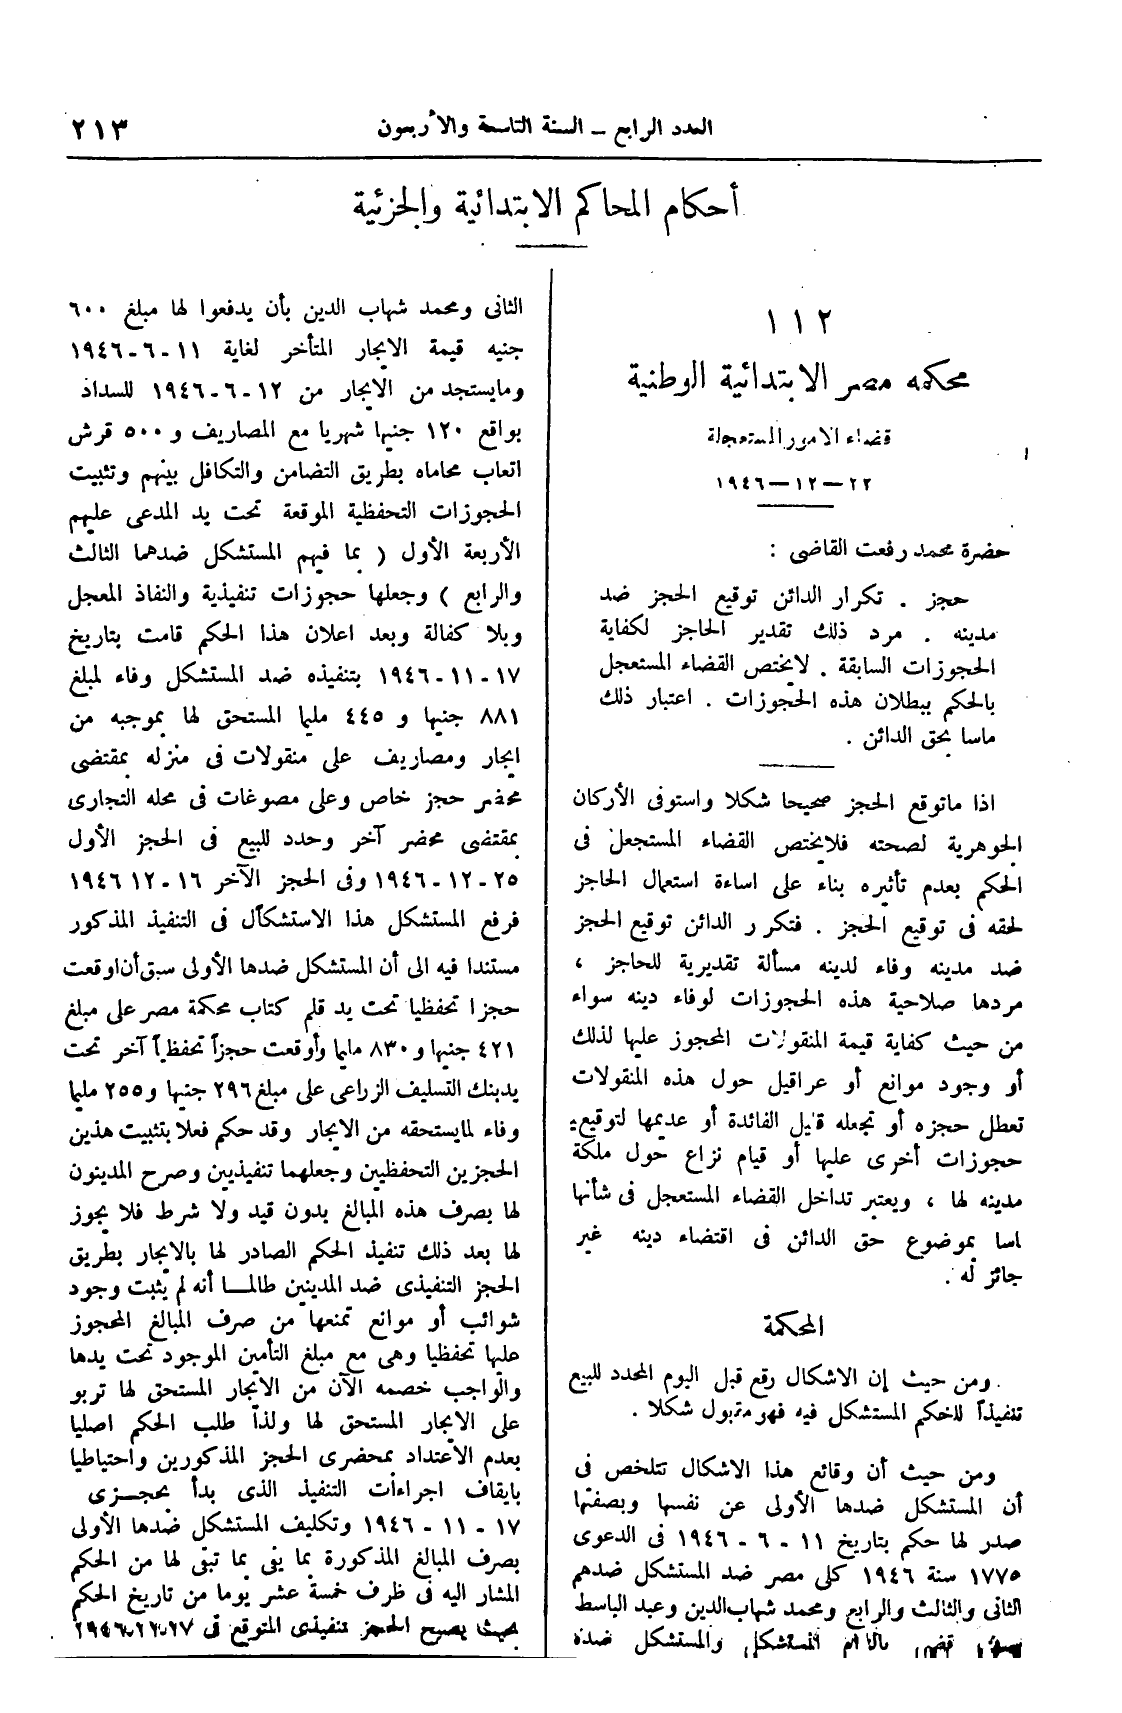 العدد الرابع ـ السنة التاسعة والأربعون
٢١٣
أحكام المحاكم الابتدائية والجزئية
١١٢
محكمة مصر الابتدائية الوطنية
قضاء الامور المستعجلة
٢٢ — ١٢ — ١٩٤٦
حضرة محمد رفعت القاضى :
حجز . تكرار الدائن توقيع الحجز ضد
مدينه . مرد ذلك تقدير الحاجز لكفاية
الحجوزات السابقة . لايختص القضاء المستعجل
بالحكم ببطلان هذه الحجوزات . اعتبار ذلك
ماسا بحق الدائن .
اذا ماتوقع الحجز صحيحا شكلا واستوفى الأركان
الجوهرية لصحته فلايختص القضاء المستجعل فى
الحكم بعدم تأثيره بناء على اساءة استعمال الحاجز
لحقه فى توقيع الحجز . فتكرر الدائن توقيع الحجز
ضد مدينه وفاء لدينه مسألة تقديرية للحاجز ،
مردها صلاحية هذه الحجوزات لوفاء دينه سواء
من حيث كفاية قيمة المنقولات المحجوز عليها لذلك
أو وجود موانع أو عراقيل حول هذه المنقولات
تعطل حجزه أو تجعله قليل الفائدة أو عديمها لتوقيع
حجوزات أخرى عليها أو قيام نزاع حول ملكة
مدينه لها ، ويعتبر تداخل القضاء المستعجل فى شأنها
اسا بموضوع حق الدائن فى اقتضاء دينه غير
جائز له .
المحكمة
ومن حيث إن الاشكال رفع قبل اليوم المحدد للبيع
تنفيذاً للحكم المستشكل فيه فهو مقبول شكلا .
ومن حيث أن وقائع هذا الاشكال تتلخص فى
أن المستشكل ضدها الأولى عن نفسها وبصفتها
صدر لها حكم بتاريخ ١١ - ٦ - ١٩٤٦ فى الدعوى
١٧٧٥ سنة ١٩٤٦ كلى مصر ضد المستشكل ضدهم
الثانى والثالث والرابع ومحمد شهاب الدين وعبد الباسط
قضى بالزام المستشكل والمستشكل ضده
الثانى ومحمد شهاب الدين بأن يدفعوا لها مبلغ ٦٠٠
جنيه قيمة الايجار المتأخر لغاية ١١-٦-١٩٤٦
ومايستجد من الايجار من ١٢-٦-١٩٤٦ للسداد
بواقع ١٢٠ جنيها شهريا مع المصاريف و ٥٠٠ قرش
اتعاب محاماه بطريق التضامن والتكافل بينهم وتثبيت
الحجوزات التحفظية الموقعة تحت يد المدعى عليهم
الأربعة الأول ( بما فيهم المستشكل ضدهما الثالث
والرابع ) وجعلها حجوزات تنفيذية والنفاذ المعجل
وبلا كفالة وبعد اعلان هذا الحكم قامت بتاريخ
١٧-١١-١٩٤٦ بتنفيذه ضد المستشكل وفاء لمبلغ
٨٨١ جنيها و ٤٤٥ مليما المستحق لها بموجبه من
ايجار ومصاريف على منقولات فى منزله بمقتضى
محضر حجز خاص وعلى مصوغات فى محله التجارى
بمقتضى محضر آخر وحدد للبيع فى الحجز الأول
٢٥-١٢-١٩٤٦ وفى الحجز الآخر ١٦-١٢ ١٩٤٦
فرفع المستشكل هذا الاستشكال فى التنفيذ المذكور
مستندا فيه الى أن المستشكل ضدها الأولى سبق أن اوقعت
حجزا تحفظيا تحت يد قلم كتاب محكمة مصر على مبلغ
٤٢١ جنيها و ٨٣٠ مليما وأوقعت حجزاً تحفظياً آخر تحت
يد بنك التسليف الزراعى على مبلغ ٢٩٦ جنيها و ٢٥٥ مليما
وفاء لمايستحقه من الايجار وقد حكم فعلا بتثبيت هذين
الحجزين التحفظيين وجعلهما تنفيذيين وصرح المدينون
لها بصرف هذه المبالغ بدون قيد ولا شرط فلا يجوز
لها بعد ذلك تنفيذ الحكم الصادر لها بالايجار بطريق
الحجز التنفيذى ضد المدينين طالمــا أنه لم يثبت وجود
شوائب أو موانع تمنعها من صرف المبالغ المحجوز
عليها تحفظيا وهى مع مبلغ التأمين الموجود تحت يدها
والواجب خصمه الآن من الايجار المستحق لها تربو
على الايجار المستحق لها ولذا طلب الحكم اصليا
بعدم الاعتداد بمحضرى الحجز المذكورين واحتياطيا
بايقاف اجراءات التنفيذ الذى بدأ بحجــزى
١٧ - ١١ - ١٩٤٦ وتكليف المستشكل ضدها الأولى
بصرف المبالغ المذكورة بما يفى بما تبقى لها من الحكم
المشار اليه فى ظرف خمسة عشر يوما من تاريخ الحكم
بحيث يصبح الحجز تنفيذى المتوقع فى